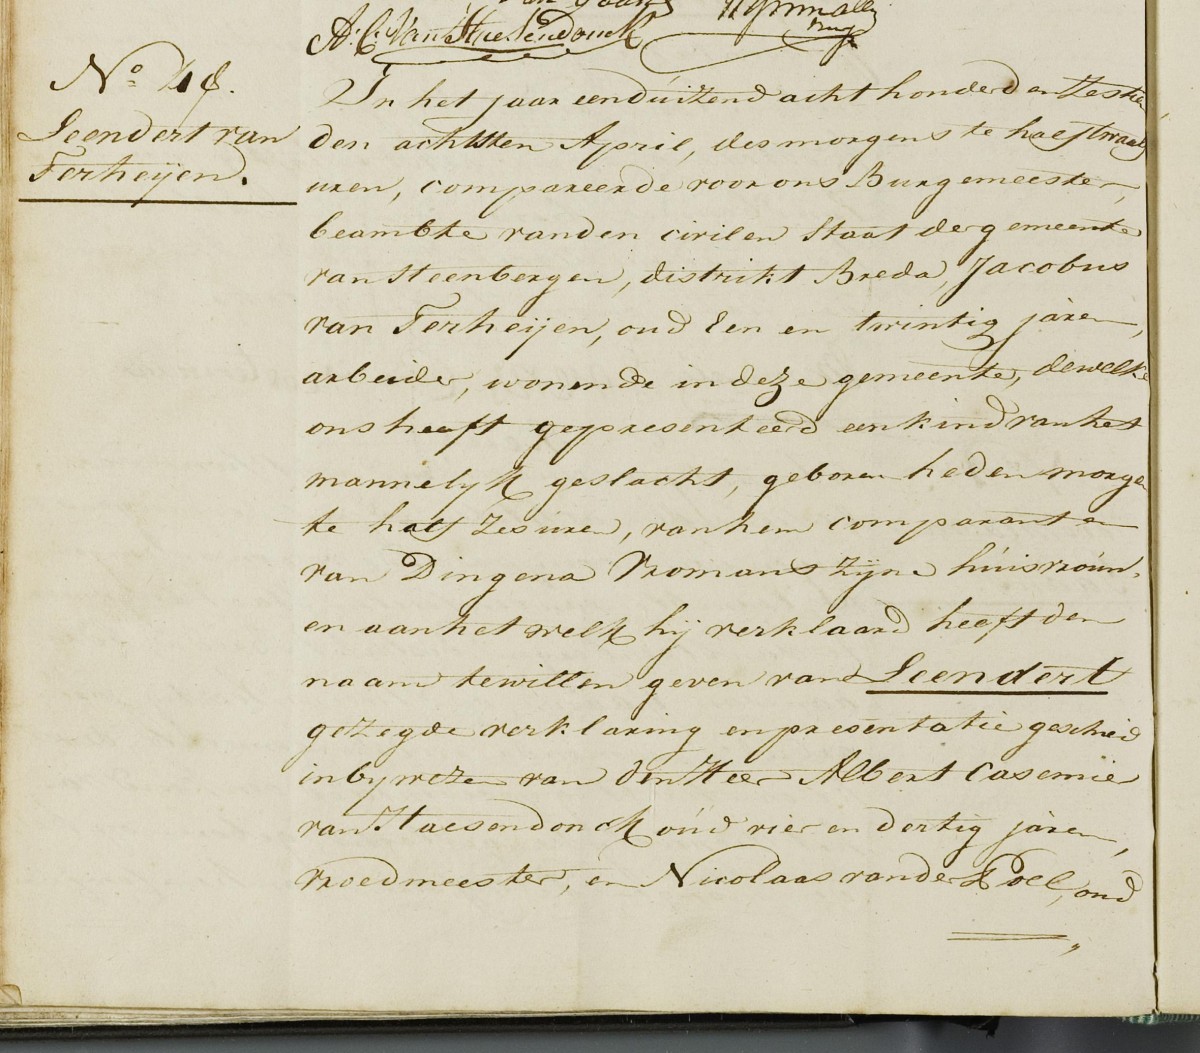 A. C. Van Haesendonck
No 48.
Leendert van
Terheijen.
In het jaar eenduizend acht honderd en Zestien
den achtsten April, des morgens te half twaalf
uren, compareerde voor ons Burgemeester,
beambte van den civilen Staat der gemeente
van Steenbergen, distrikt Breda, Jacobus
van Terheijen, oud Een en twintig jaren,
arbeider, wonende in deze gemeente, dewelke
ons heeft gepresenteerd een kind van het
mannelyk geslacht, geboren heden morgen
te half Zes uren, van hem comparant en
van Dingena Vromans Zijne huisvrouw.
en aan het welk hij verklaard heeft den
naam te willen geven van Leendert
gezegde verklaring en presentatie geschied
in bywezen van den Heer Albert Casemie
van Haesendonck oud vier en dertig jaren,
vroedmeester, en Nicolaas vander Poel, oud